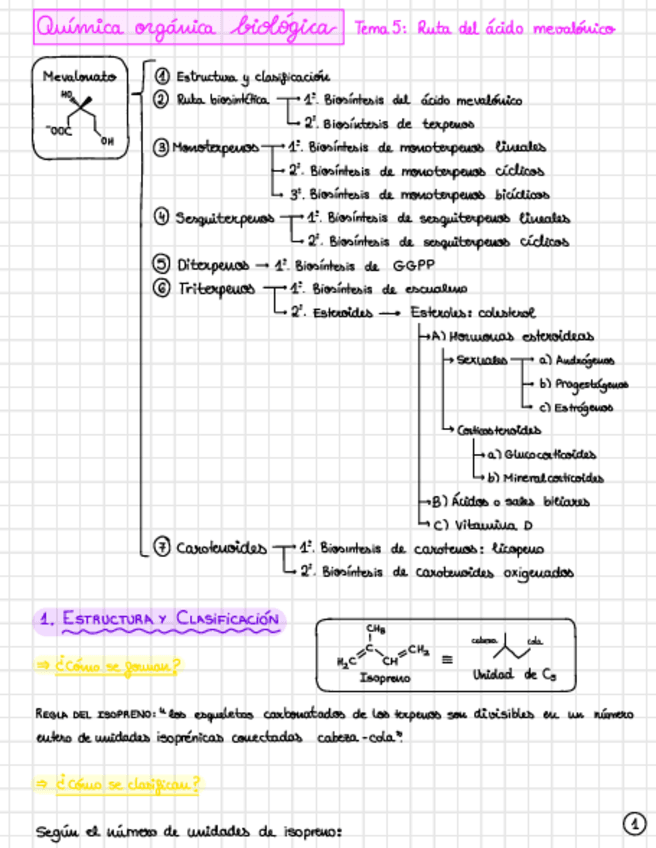 Química orgánica biológica Tema 5: Ruta del ácido mevalónico
Mevalonato
HO
⁻OOC
OH
① Estructura y clasificación
② Ruta biosintética → 1º. Biosíntesis del ácido mevalónico
→ 2º. Biosíntesis de terpenos
③ Monoterpenos → 1º. Biosíntesis de monoterpenos lineales
→ 2º. Biosíntesis de monoterpenos cíclicos
→ 3º. Biosíntesis de monoterpenos bicíclicos
④ Sesquiterpenos → 1º. Biosíntesis de sesquiterpenos lineales
→ 2º. Biosíntesis de sesquiterpenos cíclicos
⑤ Diterpenos → 1º. Biosíntesis de GGPP
⑥ Triterpenos → 1º. Biosíntesis de escualeno
→ 2º. Esteroides → Esteroles: colesterol
→ A) Hormonas esteroideas
→ Sexuales → a) Andrógenos
→ b) Progestágenos
→ c) Estrógenos
→ Corticosteroides
→ a) Glucocorticoides
→ b) Mineralcorticoides
→ B) Ácidos o sales biliares
→ C) Vitamina D
⑦ Carotenoides → 1º. Biosíntesis de carotenos: licopeno
→ 2º. Biosíntesis de carotenoides oxigenados
1. ESTRUCTURA Y CLASIFICACIÓN
CH₃
H₂C C CH CH₂ ≡ cabeza cola
Isopreno Unidad de C₅
⇒ ¿Cómo se forman?
REGLA DEL ISOPRENO: "los esqueletos carbonatados de los terpenos son divisibles en un número
entero de unidades isoprénicas conectadas cabeza-cola".
⇒ ¿Cómo se clasifican?
Según el número de unidades de isopreno:
①